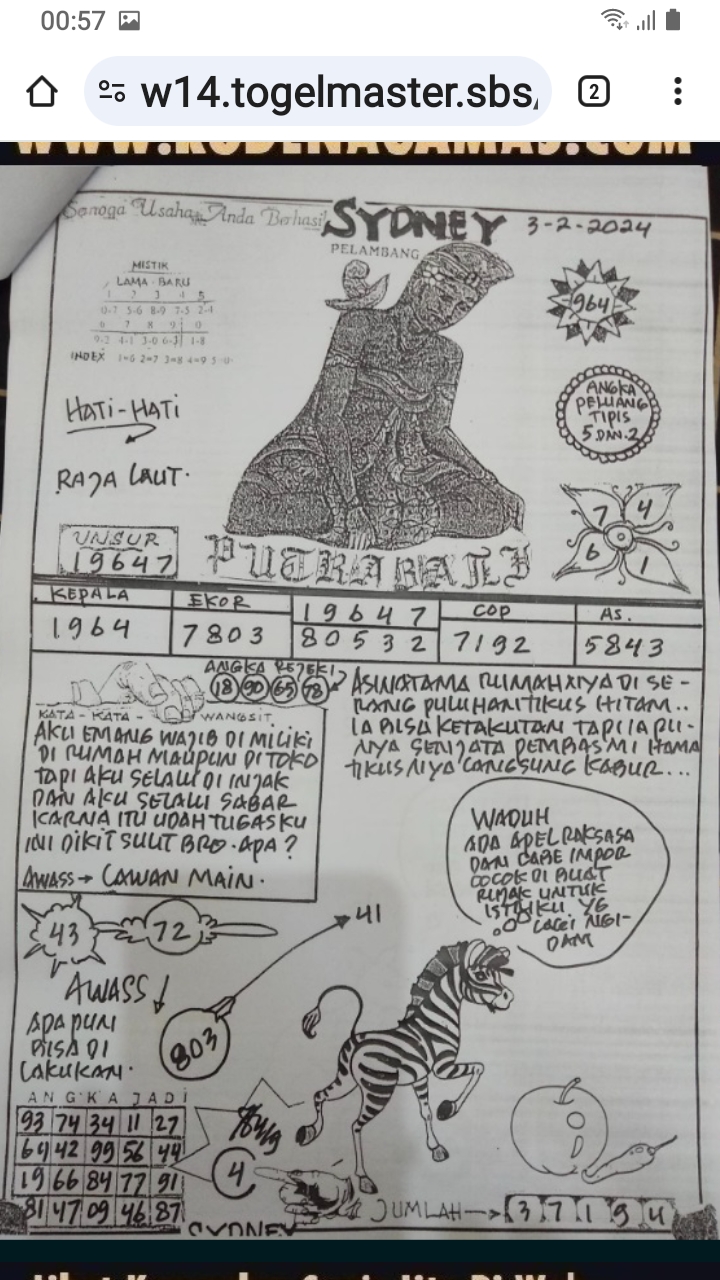 00:57
w14.togelmaster.sbs/
2
Semoga Usaha Anda Berhasil
SYDNEY 3-2-2024
PELAMBANG
MISTIK
LAMA - BARU
1 2 3 4 5
0-7 5-6 8-9 7-5 2-4
6 7 8 9 0
9-2 4-1 3-0 6-3 1-8
INDEX 1=6 2=7 3=8 4=9 5=0
964
HATI-HATI
RAJA LAUT.
ANGKA
PELUANG
TIPIS
5 DAN 2
7 4
6 1
UNSUR
19647
PUTRA BALI
KEPALA
1964
EKOR
7803
19647
80532
COP
7192
AS.
5843
ANGKA REJEKI
18 90 65 78
KATA - KATA - WANGSIT
AKU EMANG WAJIB DI MILIKI
DI RUMAH MAUPUN DI TOKO
TAPI AKU SELALU DI INJAK
DAN AKU SELALU SABAR
KARNA ITU UDAH TUGASKU
INI DIKIT SULIT BRO. APA ?
AWASS → LAWAN MAIN.
RUMAHNYA DI SE-
RANG PULUHAN TIKUS HITAM..
IA BISA KETAKUTAN TAPI IA PU-
NYA SENJATA PEMBASMI HAMA
TIKUSNYA LANGSUNG KABUR...
WADUH
ADA APEL RAKSASA
DAN CABE IMPOR
COCOK DI BUAT
RUJAK UNTUK
ISTRIKU YG
LAGI NGI-
DAM
43
72
41
AWASS
803
APA PUN
BISA DI
LAKUKAN.
ANGKA JADI
93 74 34 11 27
64 42 99 56 44
19 66 84 77 91
81 47 09 46 87
4
SYDNEY
JUMLAH → 3 7 1 9 4